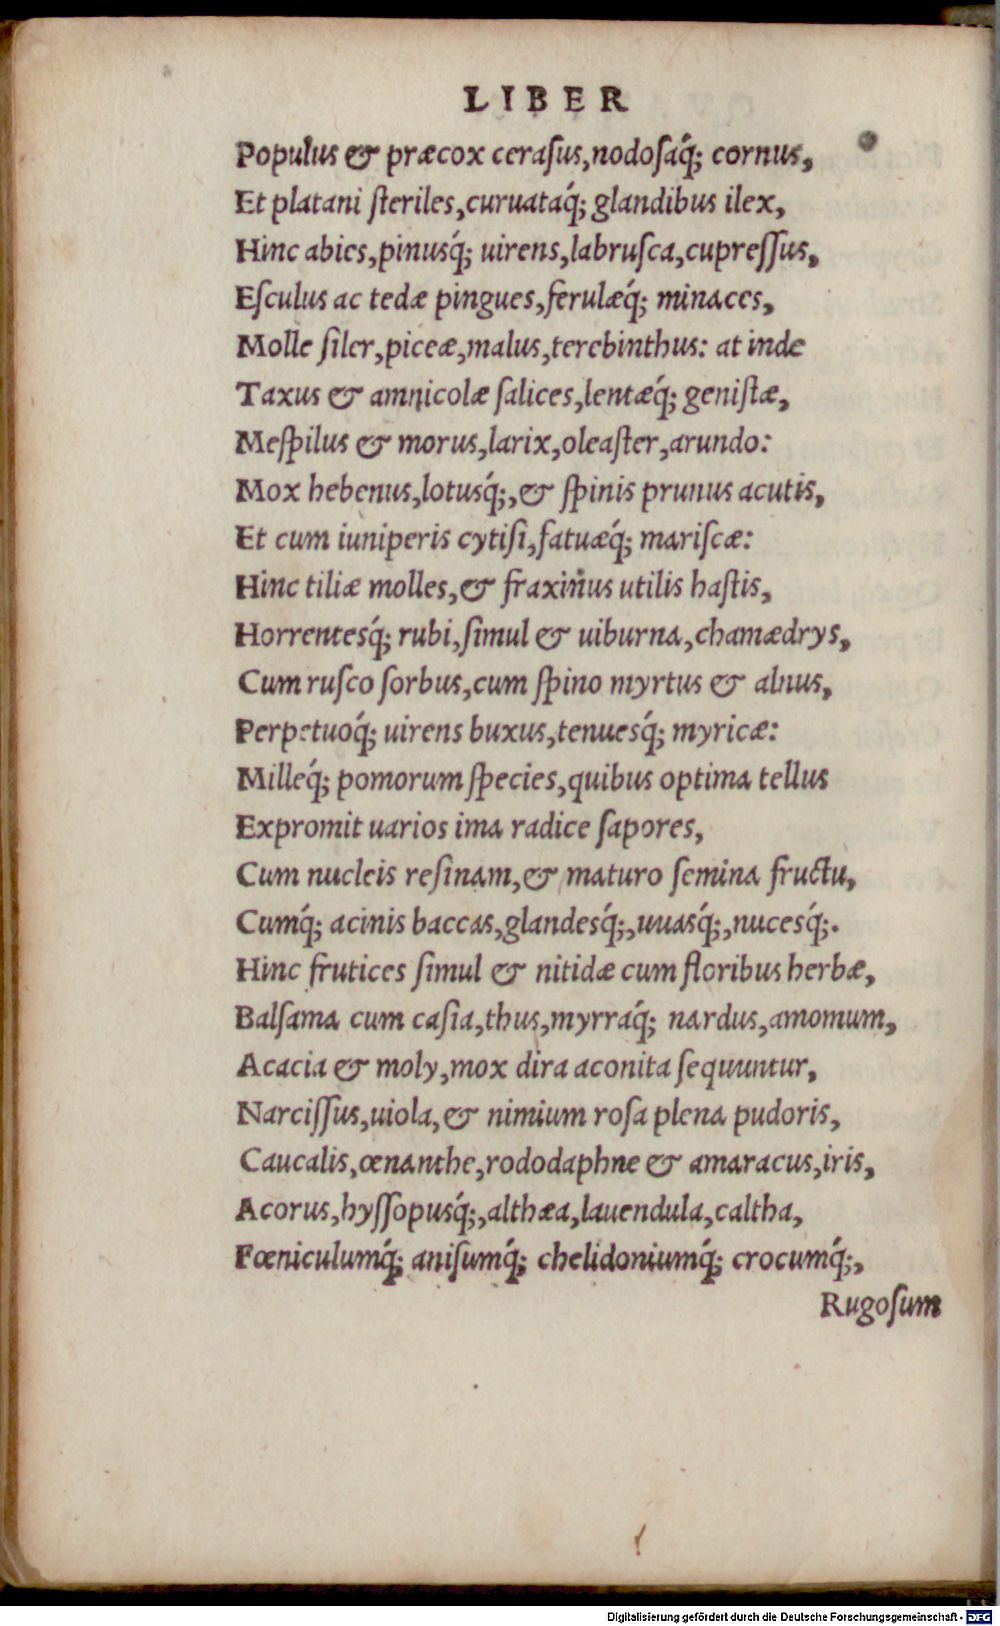 LIBER
Populus & præcox ceraſus,nodoſaq́; cornus,
Et platani ſteriles,curuataq́; glandibus ilex,
Hinc abies,pinusq́; uirens,labruſca,cupreſſus,
Eſculus ac tedæ pingues,ferulæq́; minaces,
Molle ſiler,piceæ,malus,terebinthus: at inde
Taxus & amnicolæ ſalices,lentæq́; geniſtæ,
Meſpilus & morus,larix,oleaſter,arundo:
Mox hebenus,lotusq́;,& ſpinis prunus acutis,
Et cum iuniperis cytiſi,fatuæq́; mariſcæ:
Hinc tiliæ molles,& fraxinus utilis haſtis,
Horrentesq́; rubi,ſimul & uiburna,chamædrys,
Cum ruſco ſorbus,cum ſpino myrtus & alnus,
Perpetuoq́; uirens buxus,tenuesq́; myricæ:
Milleq́; pomorum ſpecies,quibus optima tellus
Expromit uarios ima radice ſapores,
Cum nucleis reſinam,& maturo ſemina fructu,
Cumq́; acinis baccas,glandesq́;,uuasq́;,nucesq́;.
Hinc frutices ſimul & nitidæ cum floribus herbæ,
Balſama cum caſia,thus,myrraq́; nardus,amomum,
Acacia & moly,mox dira aconita ſequuntur,
Narciſſus,uiola,& nimium roſa plena pudoris,
Caucalis,œnanthe,rododaphne & amaracus,iris,
Acorus,hyſſopusq́;,althæa,lauendula,caltha,
Fœniculumq́; aniſumq́; chelidoniumq́; crocumq́;,
Rugoſum
Digitalisierung gefördert durch die Deutsche Forschungsgemeinschaft - DFG